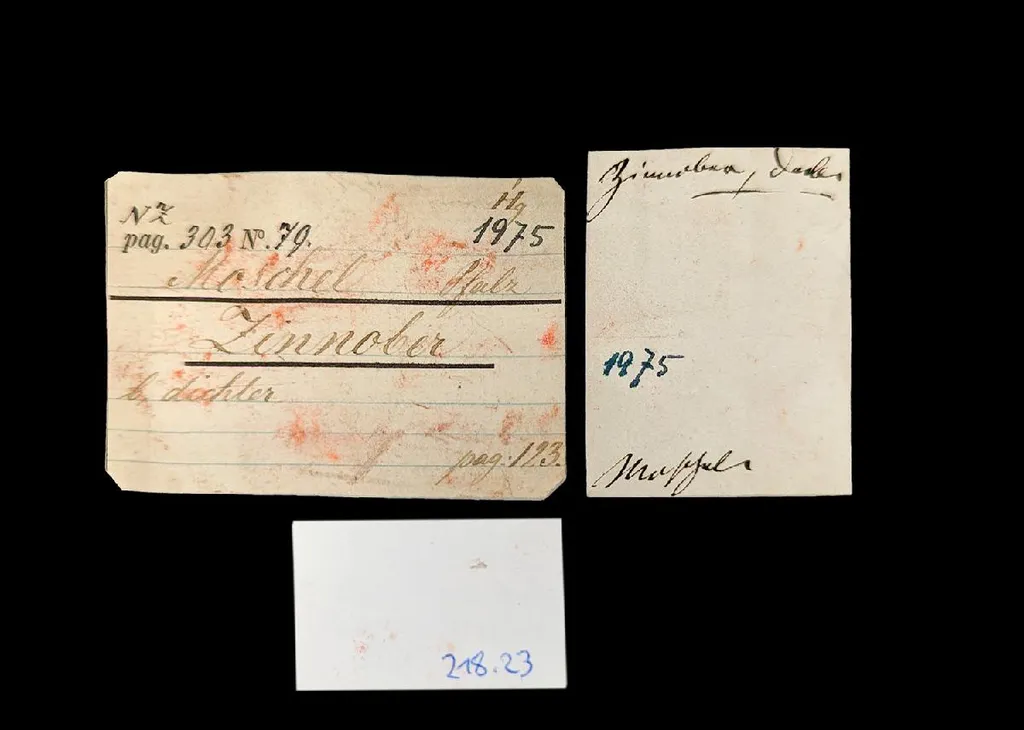 Hg
N
pag. 303 No. 79. 1975
Moschel Pfalz
Zinnober
b. dichter
pag. 123.
Zinnober, derber
1975
Moschel
218.23